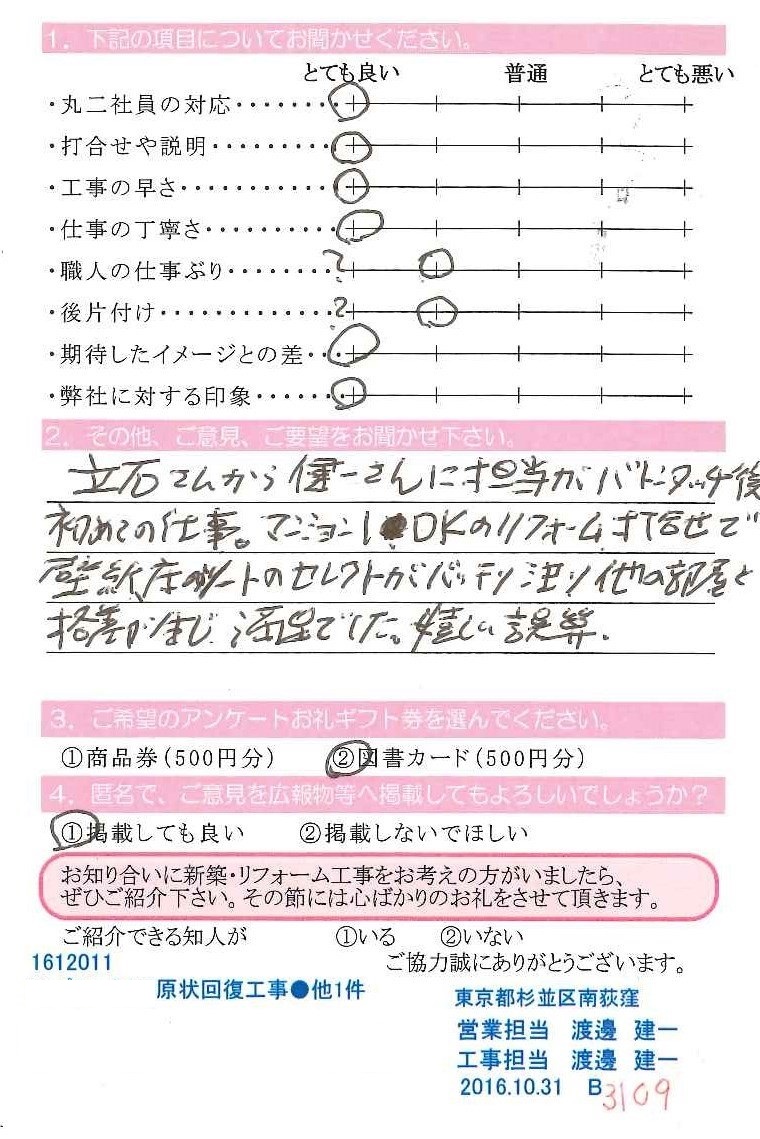 1. 下記の項目についてお聞かせください。
とても良い 普通 とても悪い
・丸二社員の対応・・・・・・・
・打合せや説明・・・・・・・・・
・工事の早さ・・・・・・・・・・・
・仕事の丁寧さ・・・・・・・・・
・職人の仕事ぶり・・・・・・・ ?
・後片付け・・・・・・・・・・・・・ ?
・期待したイメージとの差・・
・弊社に対する印象・・・・・・
2. その他、ご意見、ご要望をお聞かせ下さい。
立石さんから健一さんに担当がバトンタッチ後
初めての仕事。マンション1DKのリフォーム打合せで
壁紙床のシートのセレクトがバッチリ 他の部屋と
格差が生じ 満足でした。嬉しい誤算。
3. ご希望のアンケートお礼ギフト券を選んでください。
①商品券(500円分) ②図書カード(500円分)
4. 匿名で、ご意見を広報物等へ掲載してもよろしいでしょうか?
①掲載しても良い ②掲載しないでほしい
お知り合いに新築・リフォーム工事をお考えの方がいましたら、
ぜひご紹介下さい。その節には心ばかりのお礼をさせて頂きます。
ご紹介できる知人が ①いる ②いない
1612011 ご協力誠にありがとうございます。
原状回復工事●他1件
東京都杉並区南荻窪
営業担当 渡邊 建一
工事担当 渡邊 建一
2016.10.31 B 3109